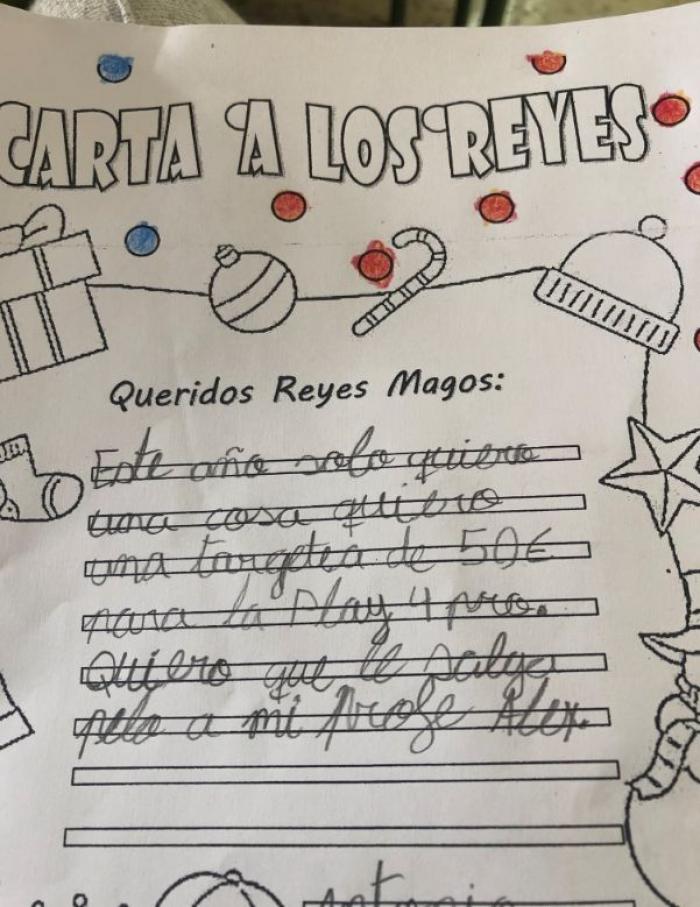 CARTA A LOS REYES
Queridos Reyes Magos:
Este año solo quiero
una cosa quiero
una targetea de 50€
para la Play 4 pro.
Quiero que le salga
pelo a mi profe Alex.
Antonio